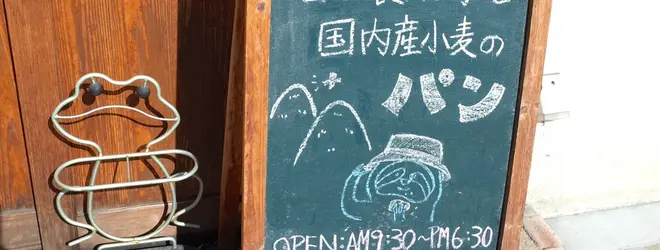 国内産小麦の
パン
OPEN:AM9:30~PM6:30